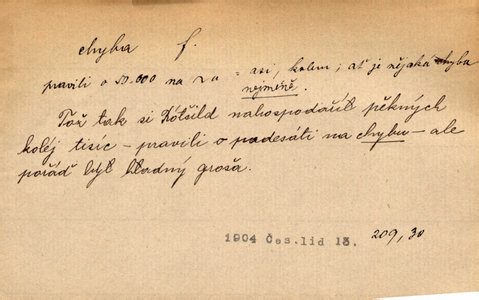 chyba f.
pravili o 50.000 na ch = asi, kolem; ať je nějaká chyba
nejméně.
Tož tak si Rótšild nahospodářil pěkných
koléj tisíc – pravili o padesáti na chybu – ale
pořáď byl hladný groša.
1904 Čes. lid 13. 209, 30